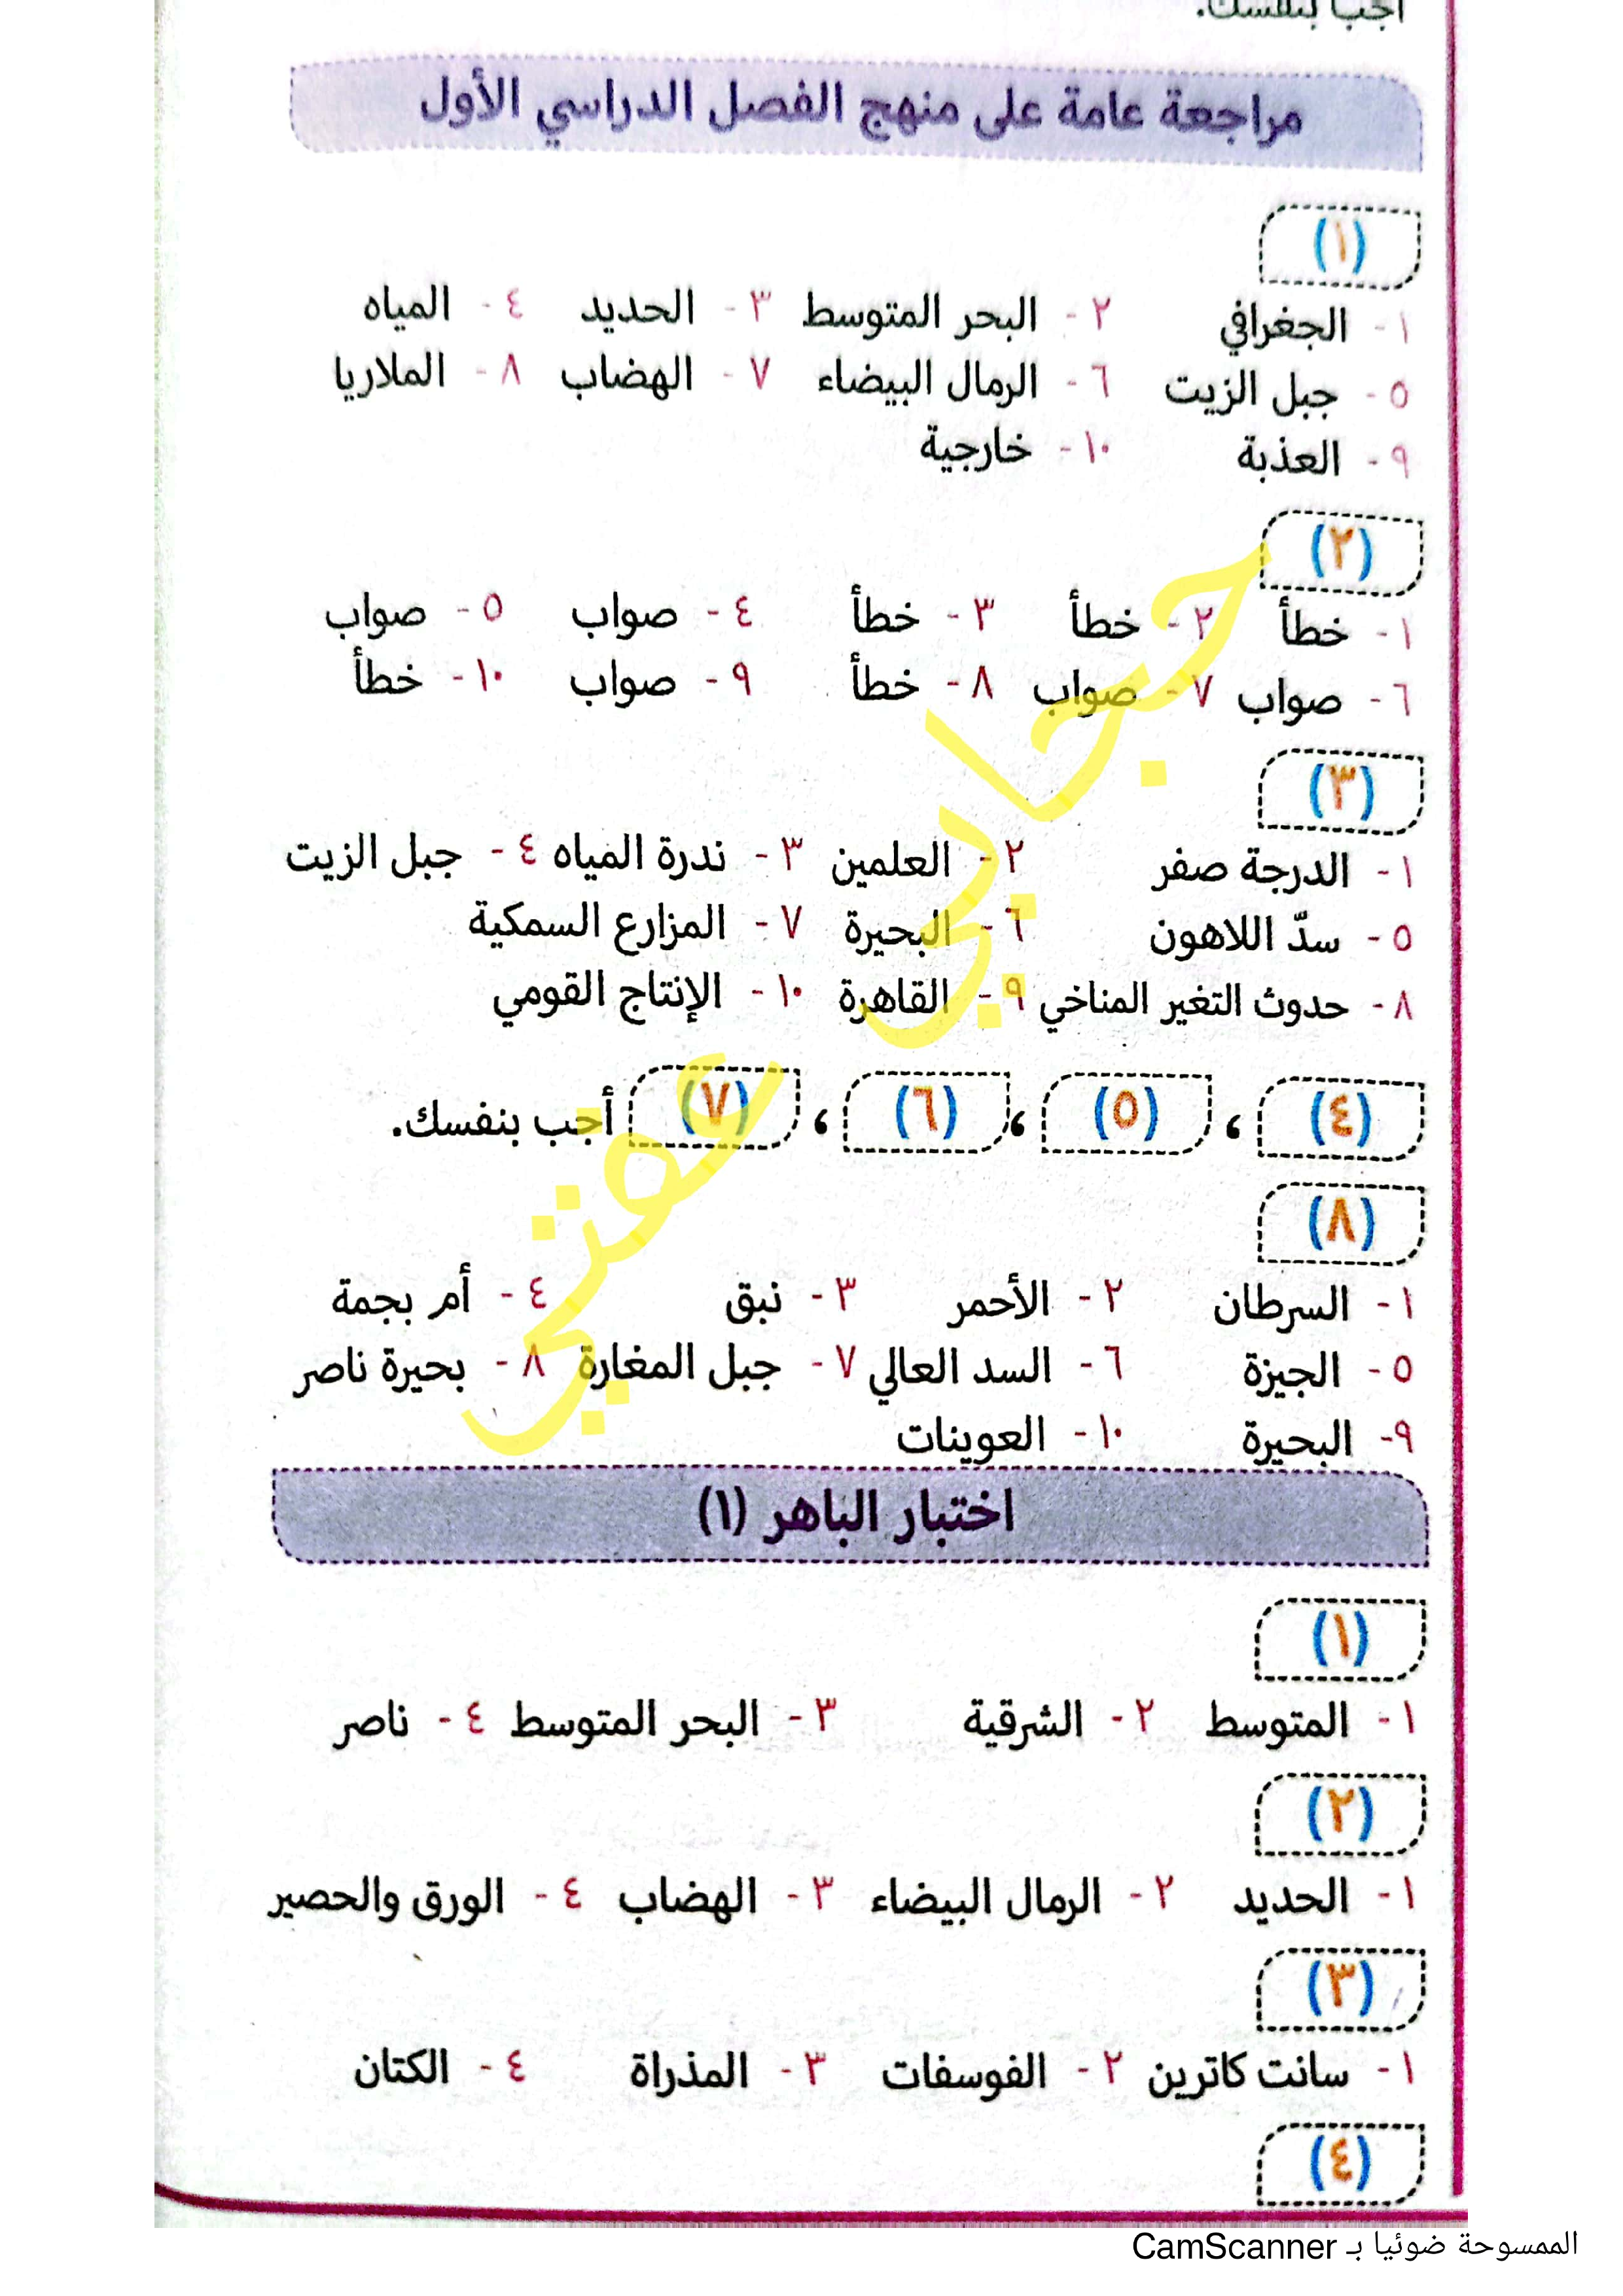 أجب بنفسك.
مراجعة عامة على منهج الفصل الدراسي الأول
(١)
١ - الجغرافي ٢ - البحر المتوسط ٣ - الحديد ٤ - المياه
٥ - جبل الزيت ٦ - الرمال البيضاء ٧ - الهضاب ٨ - الملاريا
٩ - العذبة ١٠ - خارجية
(٢)
١ - خطأ ٢ - خطأ ٣ - خطأ ٤ - صواب ٥ - صواب
٦ - صواب ٧ - صواب ٨ - خطأ ٩ - صواب ١٠ - خطأ
(٣)
١ - الدرجة صفر ٢ - العلمين ٣ - ندرة المياه ٤ - جبل الزيت
٥ - سدّ اللاهون ٦ - البحيرة ٧ - المزارع السمكية
٨ - حدوث التغير المناخي ٩ - القاهرة ١٠ - الإنتاج القومي
(٤) ، (٥) ، (٦) ، (٧) أجب بنفسك.
(٨)
١ - السرطان ٢ - الأحمر ٣ - نبق ٤ - أم بجمة
٥ - الجيزة ٦ - السد العالي ٧ - جبل المغارة ٨ - بحيرة ناصر
٩- البحيرة ١٠ - العوينات
اختبار الباهر (١)
(١)
١ - المتوسط ٢ - الشرقية ٣ - البحر المتوسط ٤ - ناصر
(٢)
١ - الحديد ٢ - الرمال البيضاء ٣ - الهضاب ٤ - الورق والحصير
(٣)
١ - سانت كاترين ٢ - الفوسفات ٣ - المذراة ٤ - الكتان
(٤)
الممسوحة ضوئيا بـ CamScanner